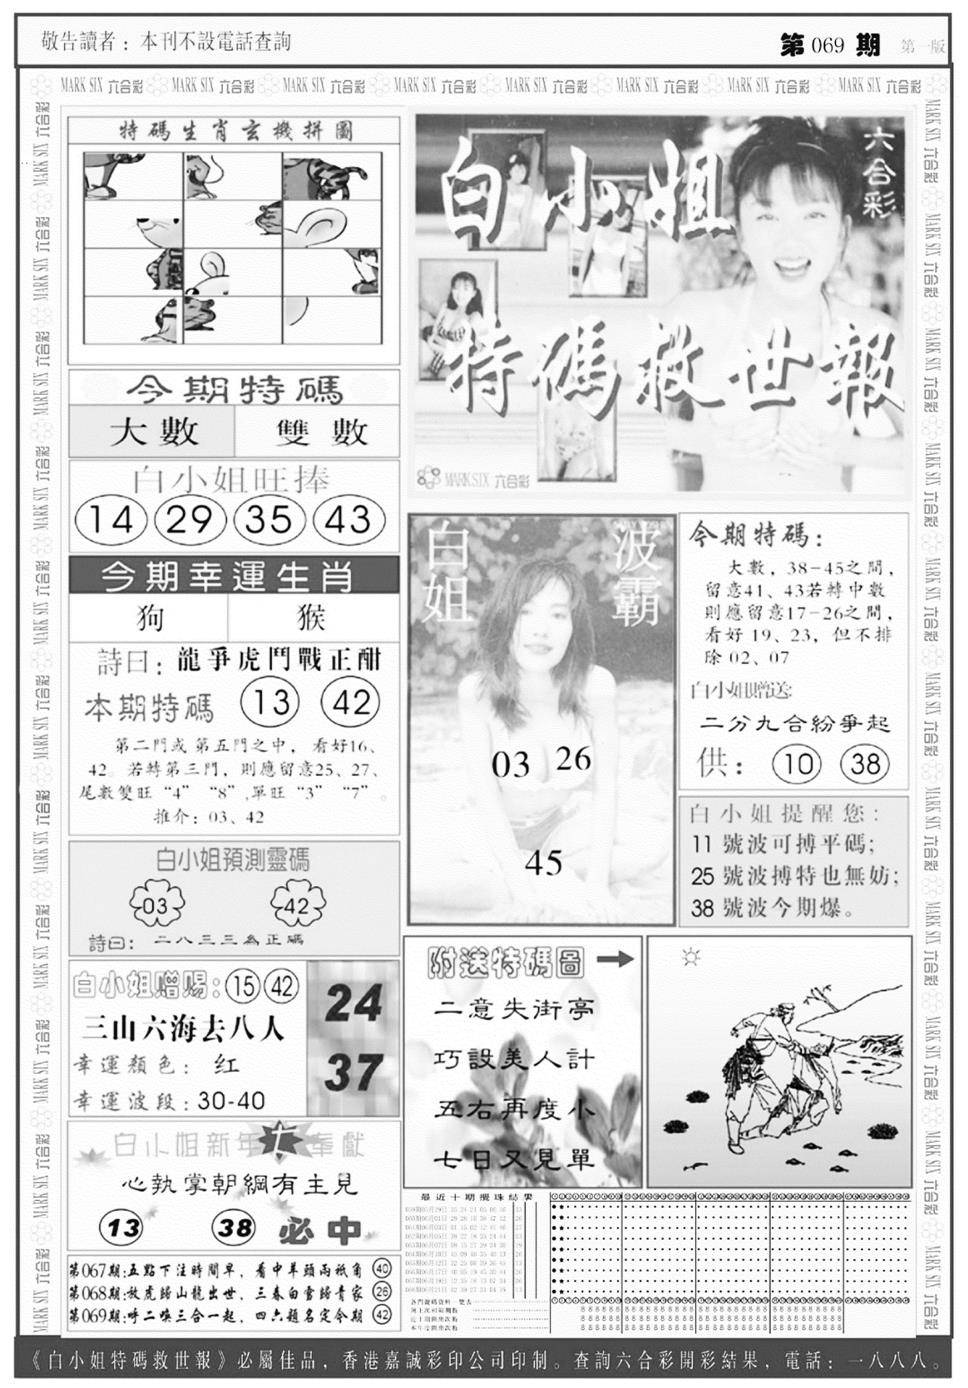 敬告讀者：本刊不設電話查詢
第069期 第一版
MARK SIX 六合彩
特碼生肖玄機拼圖
今期特碼
大數 雙數
白小姐旺捧
14 29 35 43
今期幸運生肖
狗 猴
詩曰：龍爭虎鬥戰正酣
本期特碼 13 42
第二門或第五門之中，看好16、
42。若轉第三門，則應留意25、27、
尾數雙旺“4”“8”,單旺“3”“7”。
推介：03、42
白小姐預測靈碼
03 42
詩曰：二八三三為正碼
白小姐赠赐：15 42
三山六海去八人
幸運顏色：红
幸運波段：30-40
24
37
白小姐新年 奉獻
心執掌朝綱有主見
13 38 必中
第067期:五點下注時間早，看中羊頭兩祇角 40
第068期:放虎歸山龍出世，三春白當歸青家 26
第069期:呼二喚三合一起，四六題名定今期 42
白小姐
特碼救世報
六合彩
MARK SIX 六合彩
白姐
波霸
03 26
45
今期特碼：
大數，38-45之間，
留意41、43若轉中數
則應留意17-26之間，
看好19、23，但不排
除02、07
白小姐贈送:
二分九合紛爭起
供：10 38
白小姐提醒您：
11 號波可搏平碼；
25 號波搏特也無妨；
38 號波今期爆。
附送特碼圖
二意失街亭
巧設美人計
五右再度小
七日又見單
最近十期攪珠結果
《白小姐特碼救世報》必屬佳品，香港嘉誠彩印公司印制。查詢六合彩開彩結果，電話：一八八八。